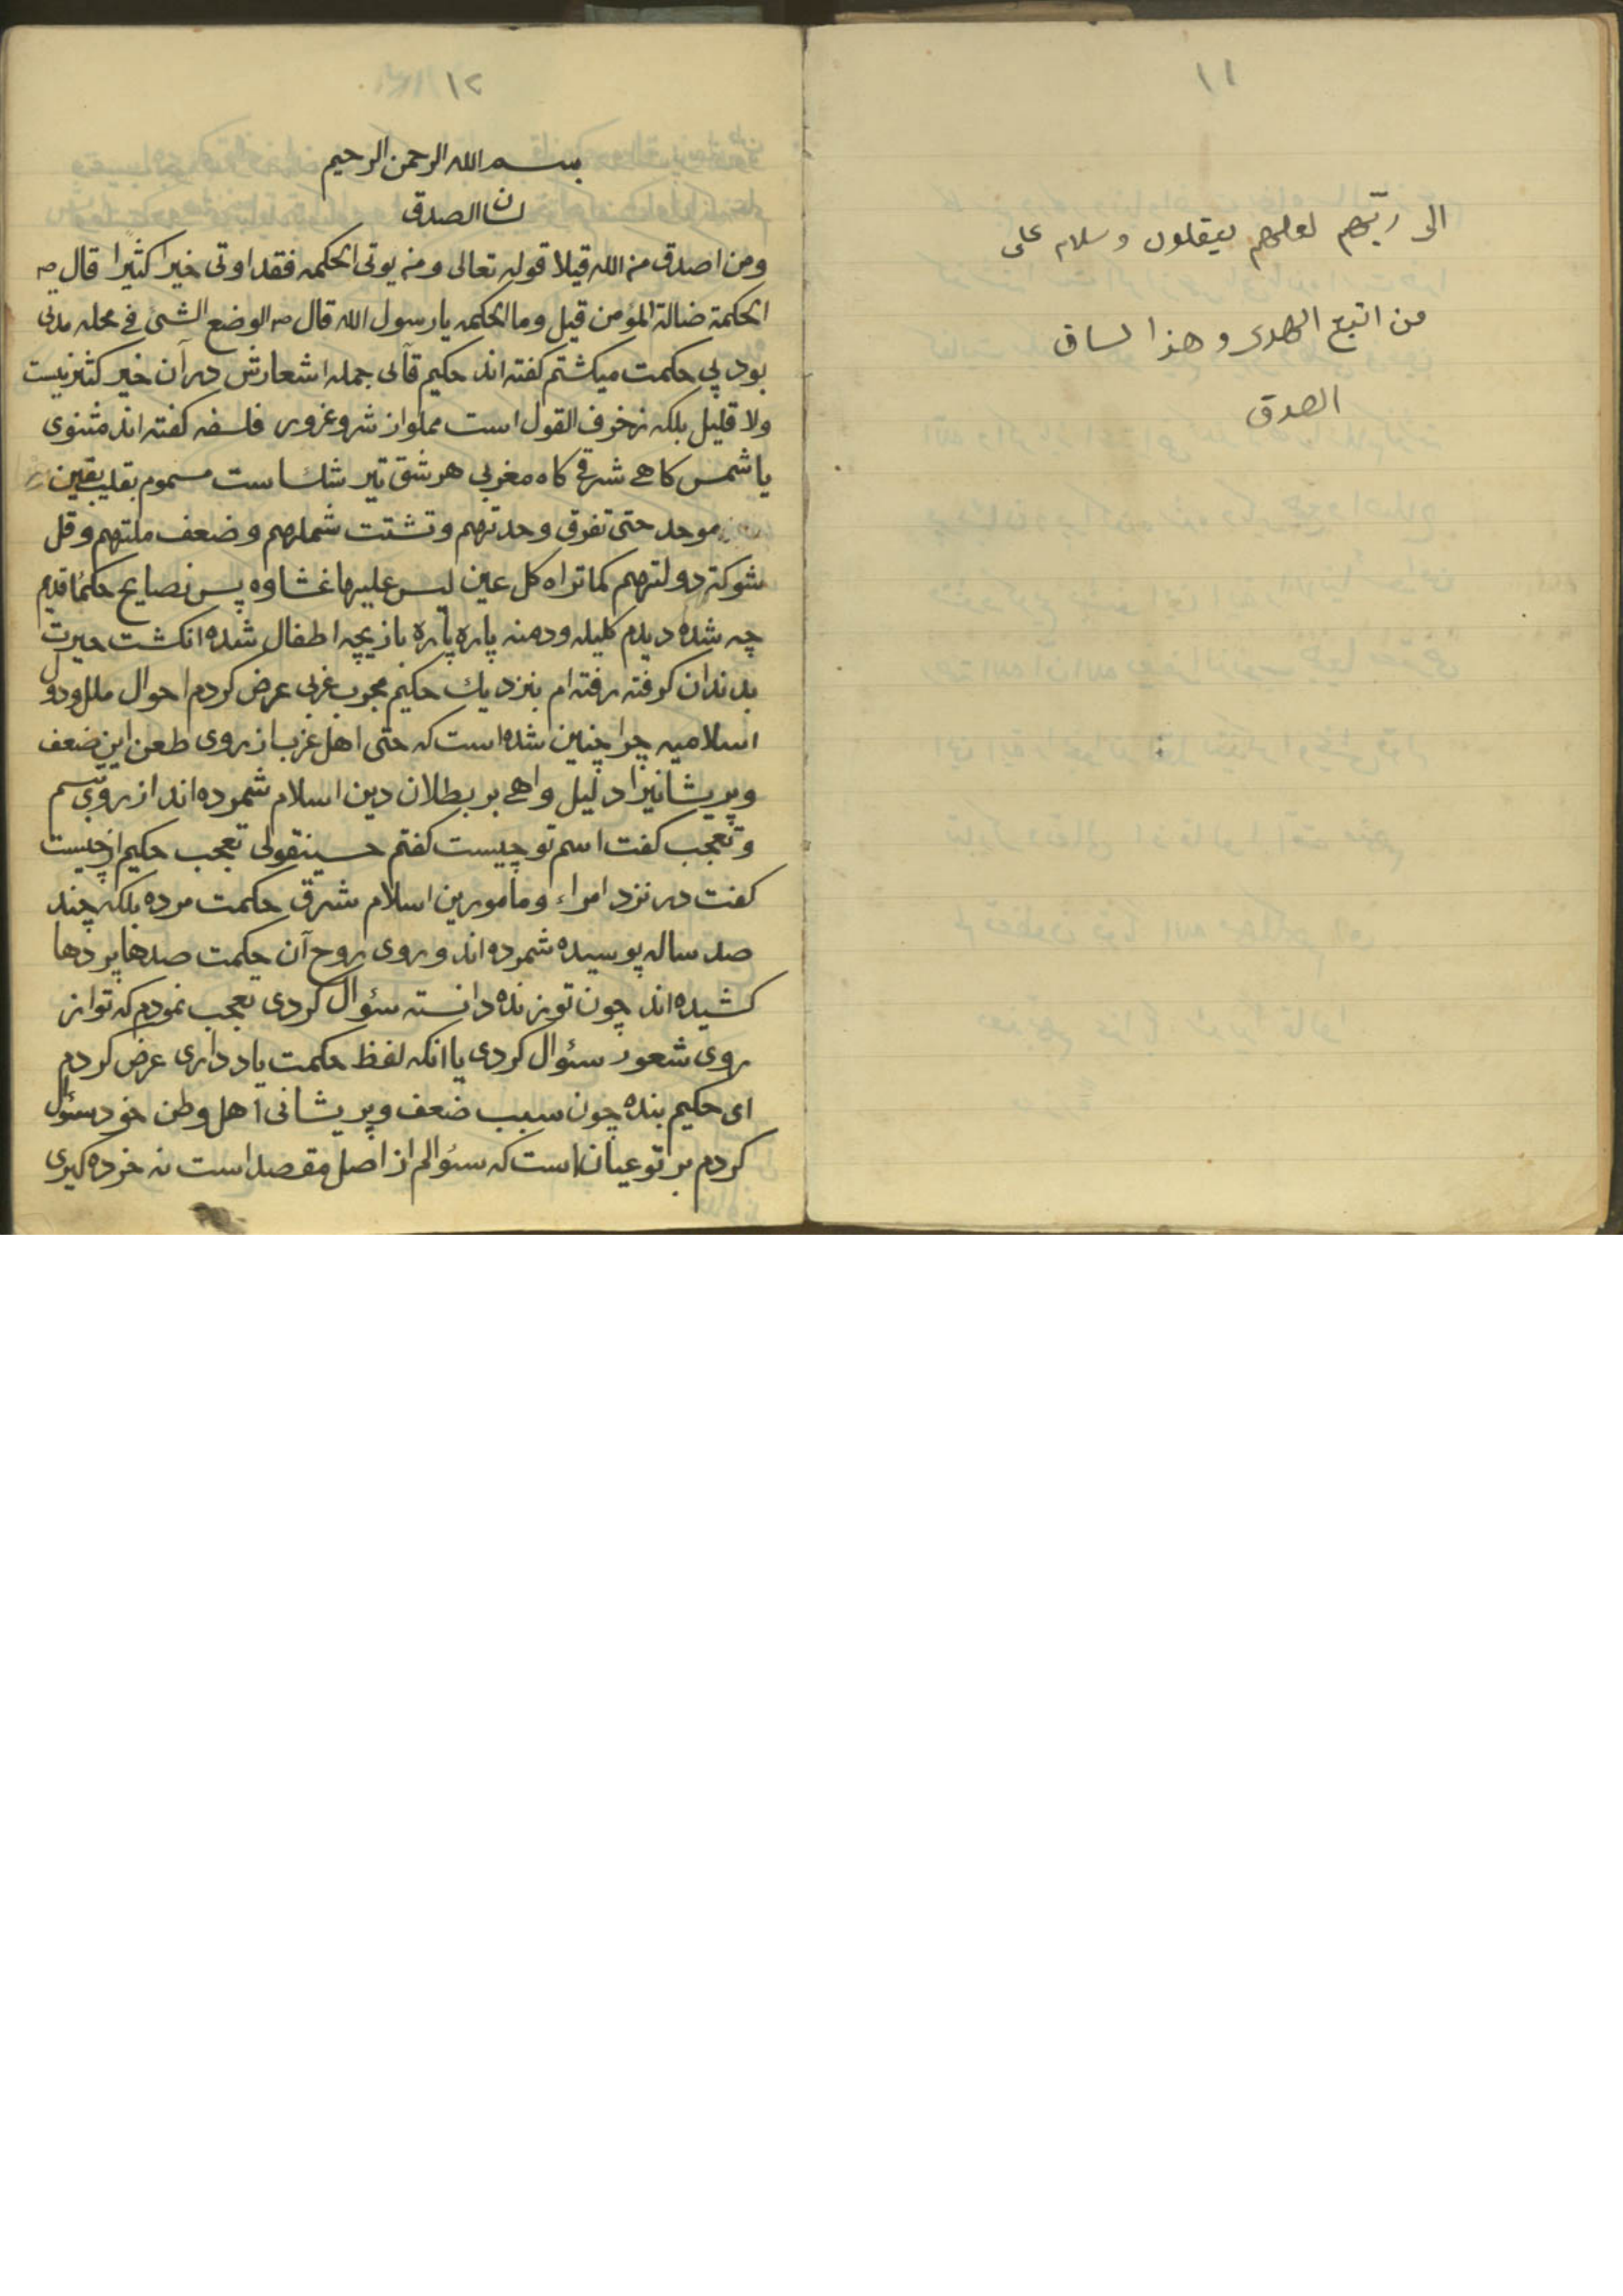 ١١
الی ربّهم لعلهم یعقلون وسلام علی
من اتبع الهدی وهذا لسان
الصدق
١٢
بسم الله الرحمن الرحیم
لسان الصدق
ومن اصدق من الله قیلا قوله تعالی ومن یوتی الحکمه فقد اوتی خیرا کثیرا قال صه
الحکمة ضالة المؤمن قیل وما الحکمه یا رسول الله قال صه الوضع الشیء فی محله مدتی
بود پی حکمت میکشتم کفته اند حکیم قاآنی جمله اشعارش در آن خیر کثیر نیست
ولا قلیل بلکه زخرف القول است مملو از شر و غرور فلسفه کفته اند مثنوی
یا شمس کاهی شرقی کاه مغربی هر شق تیر شک است مسموم بقلب یقین
موحد حتی تفرق وحدتهم وتشتت شملهم وضعف ملتهم وقل
شوکة دولتهم کما تراه کل عین لیس علیها غشاوه پس نصایح حکماء قدیم
چه شده دیدم کلیله ودمنه پاره پاره بازیچه اطفال شده انکشت حیرت
بدندان کرفته رفته ام بنزد یک حکیم مجرب غربی عرض کردم احوال ملل ودول
اسلامیه چرا چنین شده است که حتی اهل غرب از روی طعن این ضعف
وپریشانیرا دلیل واهی بر بطلان دین اسلام شمرده اند از روی تبسم
وتعجب کفت اسم تو چیست کفتم حسینقولی تعجب حکیم از چیست
کفت در نزد امراء ومأمورین اسلام شرق حکمت مرده بلکه چند
صد ساله پوسیده شمرده اند وروی روح آن حکمت صدها پردها
کشیده اند چون تو زنده دانسته سئوال کردی تعجب نمودم که تو از
روی شعور سئوال کردی یا انکه لفظ حکمت یاد داری عرض کردم
ای حکیم بنده چون سبب ضعف وپریشانی اهل وطن خود سئوال
کردم بر تو عیان است که سئوالم از اصل مقصد است نه خرده کیری